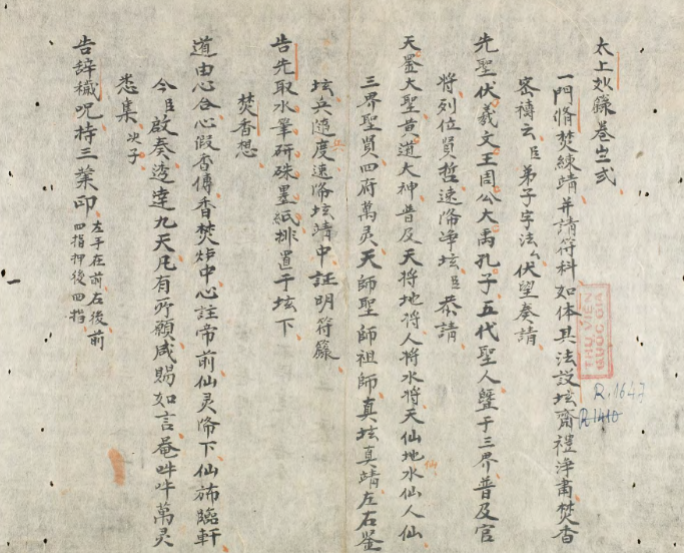 太上 籙卷 弍
一門脩焚練靖并請符科如体具法設坛齋禮浄肅焚香
密禱云臣弟子字法厶伏望奏請
先聖伏羲文王周公大禹孔子五代聖人曁于三界普及官
將列位賢哲速降浄坛臣恭請
天 大聖黄道大神普及天將地將人將水將天仙地水仙人仙
三界聖賢四府萬灵天師聖師祖師真坛真靖左右
坛兵隨度速降坛靖中証明符籙
告先取水 研硃墨紙排置于坛下
焚香想
道由心合心假香傳香焚炉中心註帝前仙灵降下仙斾臨軒
今臣啟奏透達九天凡有所願咸賜如言 吽吽萬灵
悉集 次子
告辞穢呪持三業印 左手在前右後前四指押後四指
THƯ VIỆN
QUỐC GIA
R.1647
R1410